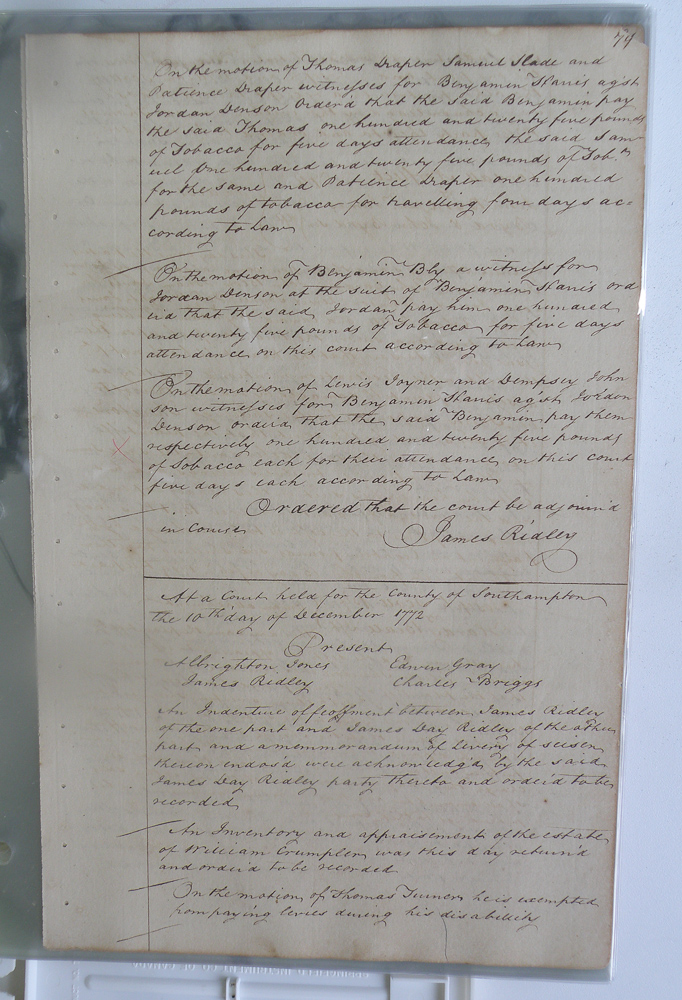 79
On the motion of Thomas Draper Samuel Slade and
Patience Draper witnesses for Benjamin Harris agst
Jordan Denson Order'd that the said Benjamin pay
the said Thomas one hundred and twenty five pounds
of Tobacco for five days attendance the said Sam
uel One hundred and twenty five pounds of Tob.o
for the same and Patience Draper one hundred
pounds of tobacco for travelling four days ac=
cording to Law
On the motion of Benjamin Bly a witness for
Jordan Denson at the suit of Benjamin Harris ord
er'd that the said Jordan pay him one hundred
and twenty five pounds of Tobacco for five days
attendance on this court according to Law
On the motion of Lewis Joyner and Dempsey John
son witnesses for Benjamin Harris agst Jordan
Denson order'd that the said Benjamin pay them
respectively one hundred and twenty five pounds
of Tobacco each for their attendance on this court
five days each according to Law
Ordered that the court be adjourn'd
in Course
James Ridley
At a Court held for the County of Southampton
the 10th day of December 1772
Present
Albrighton Jones Edwin Gray
James Ridley Charles Briggs
An Indenture of feoffment between James Ridley
of the one part and James Day Ridley of the other
part and a memmorandum of livery of seisen
thereon endos'd were acknowledg'd by the said
James Day Ridley party thereto and order'd to be
recorded
An Inventory and appraisement of the estate
of William Crumpler was this day return'd
and order'd to be recorded
On the motion of Thomas Turner he is exempted
from paying levies during his disability